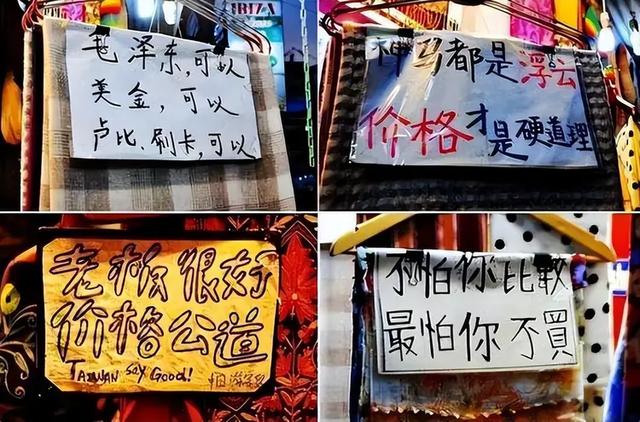 毛泽东,可以
美金,可以
卢比.刷卡,可以
神马都是浮云
价格才是硬道理
老板很好
价格公道
TAIWAN SAY GOOD!
不怕你比較
最怕你不買